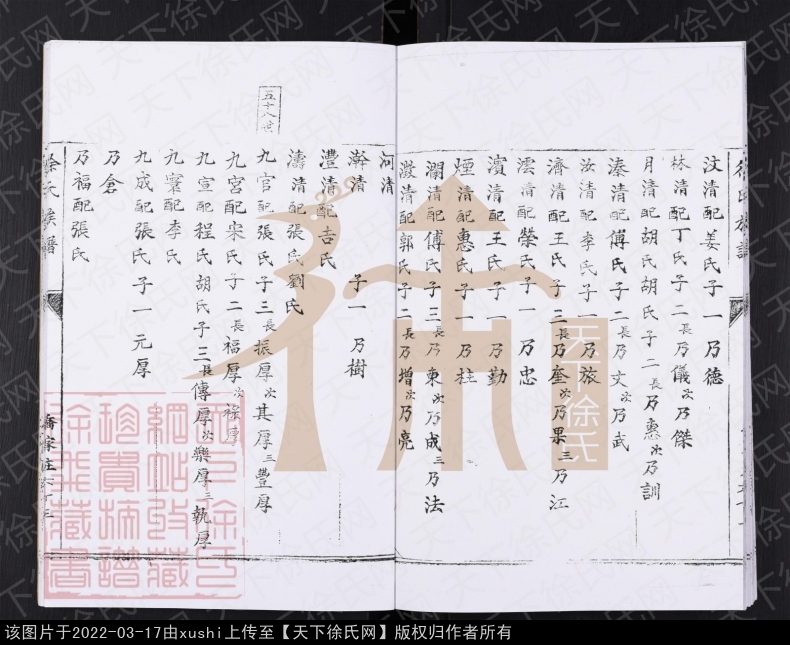 徐氏族譜
汶清配姜氏子一乃德
林清配丁氏子二長乃儀次乃傑
月清配胡氏胡氏子二長乃惠次乃訓
溱清配傅氏子二長乃文次乃武
汝清配李氏子一乃旅
濟清配王氏子三長乃奎次乃果三乃江
澐清配榮氏子一乃忠
濱清配王氏子一乃勤
湮清配惠氏子一乃柱
瀾清配傅氏子三長乃東次乃成三乃法
澂清配郭氏子二長乃增次乃亮
河清
瀚清 子一乃樹
灃清配吉氏
濤清配張氏劉氏
五十八世
九官配張氏子三長振厚次其厚三豐厚
九宮配宋氏子二長福厚次祿厚
九宣配程氏胡氏子三長傳厚次樂厚三執厚
九寧配李氏
九成配張氏子一元厚
乃倉
乃福配張氏
徐氏族譜
喬家庄
天下徐氏
天下徐氏网
该图片于2022-03-17由xushi上传至【天下徐氏网】版权归作者所有